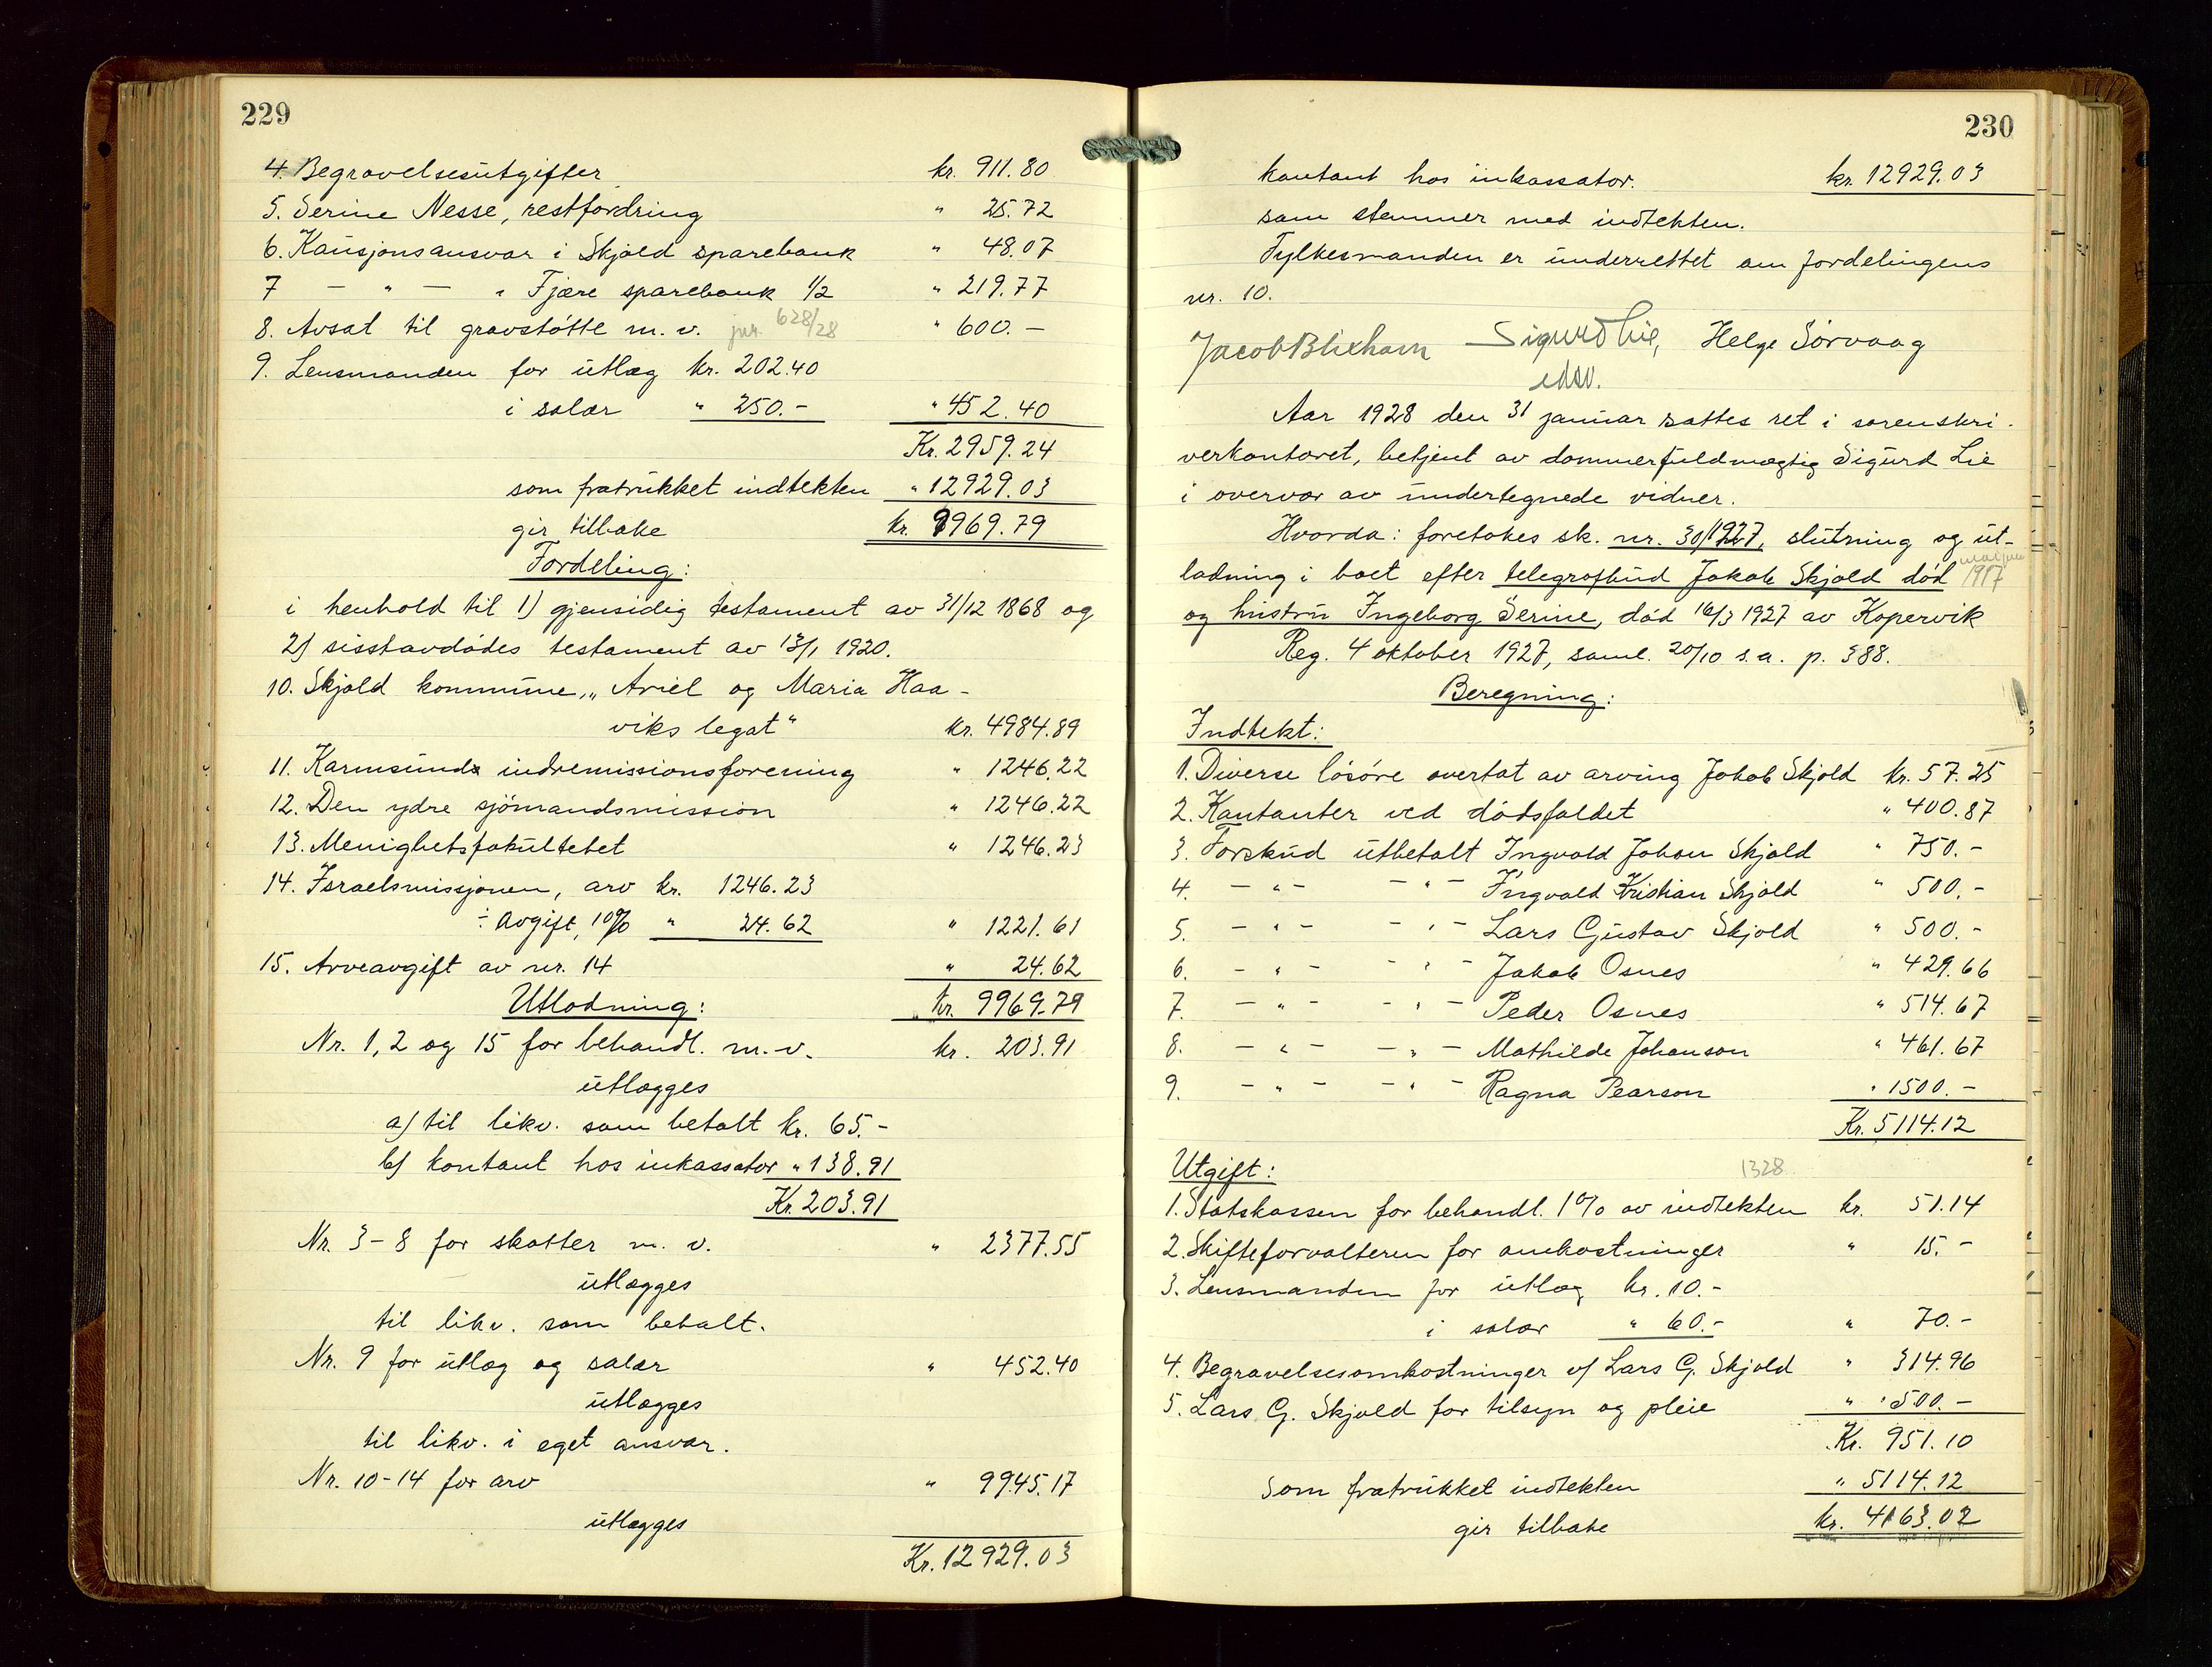 229
4. Begravelsesutgifter kr. 911.80
5. Serine Nesse, restfordring " 25.72
6. Kausjonsansvar i Skjold sparebank " 48.07
7 — " — " Fjære sparebank 1/2 " 219.77
8. Avsat til gravstøtte m. v. jnr. 628/28 " 600.—
9. Lensmanden for utlæg kr. 202.40
i salær " 250.- " 452.40
Kr. 2959.24
som fratrukket indtekten " 12929.03
gir tilbake kr. 9969.79
Fordeling:
i henhold til 1) gjensidig testament av 31/12 1868 og
2) sisstavdødes testament av 13/1 1920.
10. Skjold kommune, "Ariel og Maria Haa-
viks legat" kr. 4984.89
11. Karmsunds indremissionsforening " 1246.22
12. Den ydre sjömandsmission " 1246.22
13. Menighetsfakultetet " 1246.23
14. Israelsmissjonen, arv kr. 1246.23
÷ Avgift, 10% " 24.62 " 1221.61
15. Arveavgift av nr. 14 " 24.62
Utlodning: kr. 9969.79
Nr. 1, 2 og 15 for behandl. m. v. kr. 203.91
utlægges
a) til likv. som betalt kr. 65.-
b) kontant hos inkassator " 138.91
Kr. 203.91
Nr. 3-8 for skatter m. v. " 2377.55
utlægges
til likv. som betalt.
Nr. 9 for utlæg og salær " 452.40
utlægges
til likv. i eget ansvar.
Nr. 10-14 for arv " 9945.17
utlægges
Kr. 12929.03
230
kontant hos inkassator. kr. 12929.03
som stemmer med indtekten.
Fylkesmanden er underrettet om fordelingens
nr. 10.
Jacob Blixhavn Sigurd Lie, Helge Sörvaag
edsv.
Aar 1928 den 31 januar sattes ret i sorenskri-
verkontoret, betjent av dommerfuldmægtig Sigurd Lie
i overvær av undertegnede vidner.
Hvorda: foretokes sk. nr. 30/1927, slutning og ut-
lodning i boet efter telegrafbud Jakob Skjold død 1917
og hustru Ingeborg Serine, død 16/3 1927 av Kopervik
Reg. 4 oktober 1927, saml. 20/10 s.a. p. 388.
Beregning:
Indtekt:
1. Diverse løsøre overtat av arving Jakob Skjold kr. 57.25
2. Kontanter ved dødsfaldet " 400.87
3. Forskud utbetalt Ingvald Johan Skjold " 750.-
4. — " — — " — Ingvald Kristian Skjold " 500.-
5. — " — — " — Lars Gustav Skjold " 500.-
6. — " — — " — Jakob Osnes " 429.66
7. — " — — " — Peder Osnes " 514.67
8. — " — — " — Mathilde Johanson " 461.67
9. — " — — " — Ragna Pearson " 1500.-
Kr. 5114.12
Utgift: 1328
1. Statskassen for behandl. 1% av indtekten kr. 51.14
2. Skifteforvalteren for omkostninger " 15.-
3. Lensmanden for utlæg kr. 10.-
i salær " 60.- " 70.-
4. Begravelsesomkostninger v/ Lars G. Skjold " 314.96
5. Lars G. Skjold for tilsyn og pleie " 500.—
Kr. 951.10
som fratrukket indtekten " 5114.12
gir tilbake kr. 4163.02